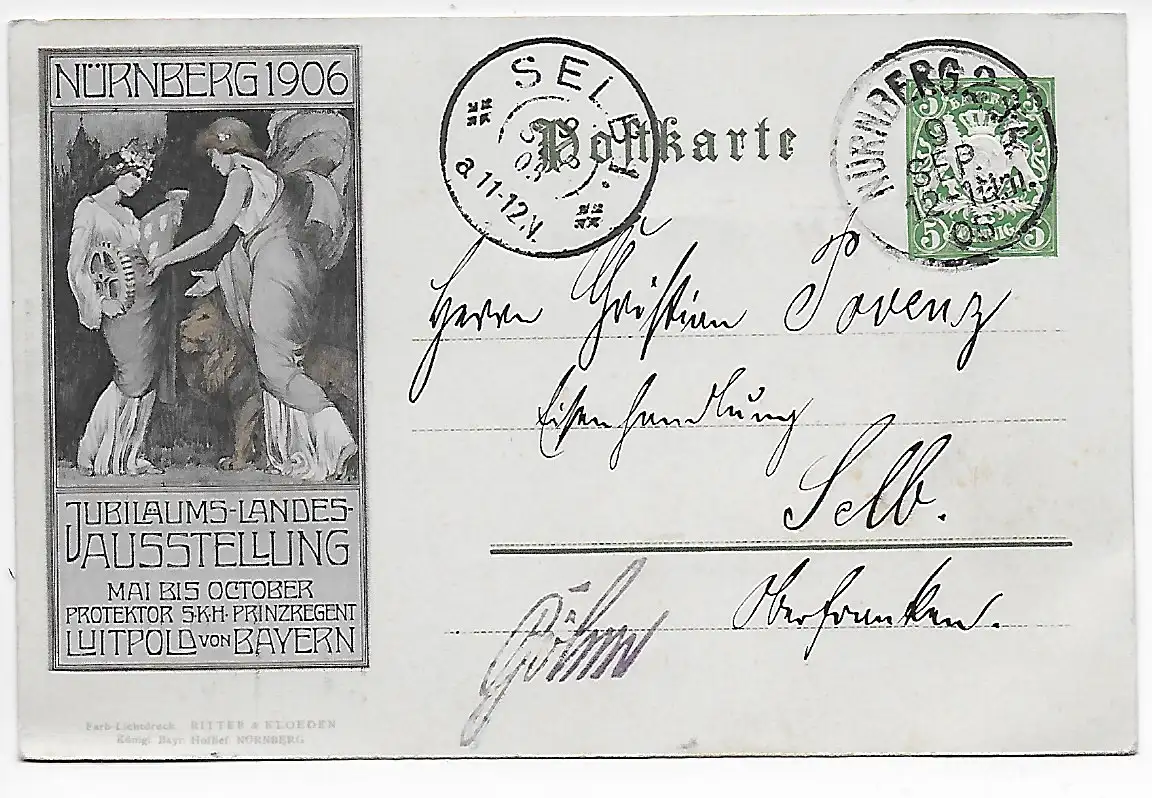 NÜRNBERG 1906
JUBILÄUMS-LANDES-
AUSSTELLUNG
MAI BIS OCTOBER
PROTEKTOR S·K·H· PRINZREGENT
LUITPOLD VON BAYERN
Farb-Lichtdruck RITTER & KLOEDEN
Königl. Bayr. Hoflief. NÜRNBERG
Postkarte
SELB
11-12 V.
NÜRNBERG 2
9
SEP.
05
5 5
BAYERN
5 5
Herrn Christian
Eisenhandlung
Selb.
Oberfranken.
Böhm